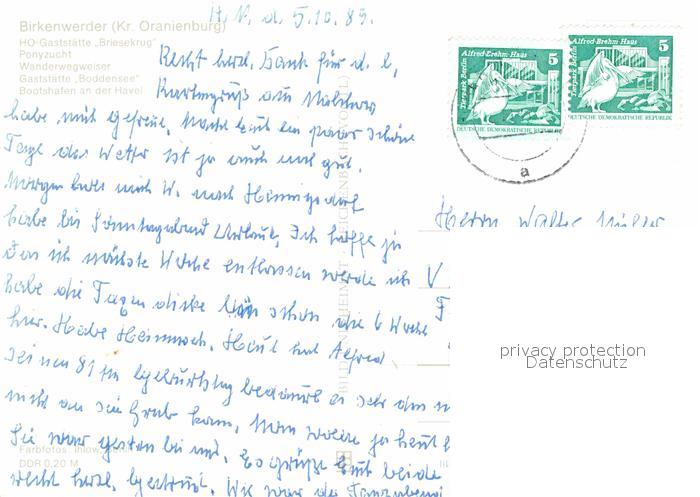 H. N. d. 5.10.89.
Birkenwerder (Kr. Oranienburg)
HO-Gaststätte „Briesekrug"
Ponyzucht
Wanderwegweiser
Gaststätte „Boddensee"
Bootshafen an der Havel
Recht herzl. Dank für d. l,
Kartengruß aus
habe mich gefreut, Macht Euch ein paar schöne
Tage das Wetter ist ja auch noch gut.
Morgen holt mich W. nach Hennigsdorf
habe bis Sonntagabend Urlaub, Ich hoffe ja
das ich nächste Woche entlassen werde ich
habe die Tage dicke bin schon die 6 Woche
hier. Habe Heimweh. Heut hat Alfred
seinen 81 ten Geburtstag bedauert es sehr das
nicht an sein Grab kann,
Sie war gestern bei mir, Es grüßt Euch beide
recht herzl. Gertrud. Wie war der Tanzabend
Alfred-Brehm-Haus
Tierpark Berlin
5
DEUTSCHE DEMOKRATISCHE REPUBLIK
Alfred-Brehm-Haus
Tierpark Berlin
5
DEUTSCHE DEMOKRATISCHE REPUBLIK
a
Herrn Walter Müller
V
F
privacy protection
Datenschutz
BILD UND HEIMAT REICHENBACH (VOGTL)
Farbfotos: Ihlow,
DDR 0,20 M